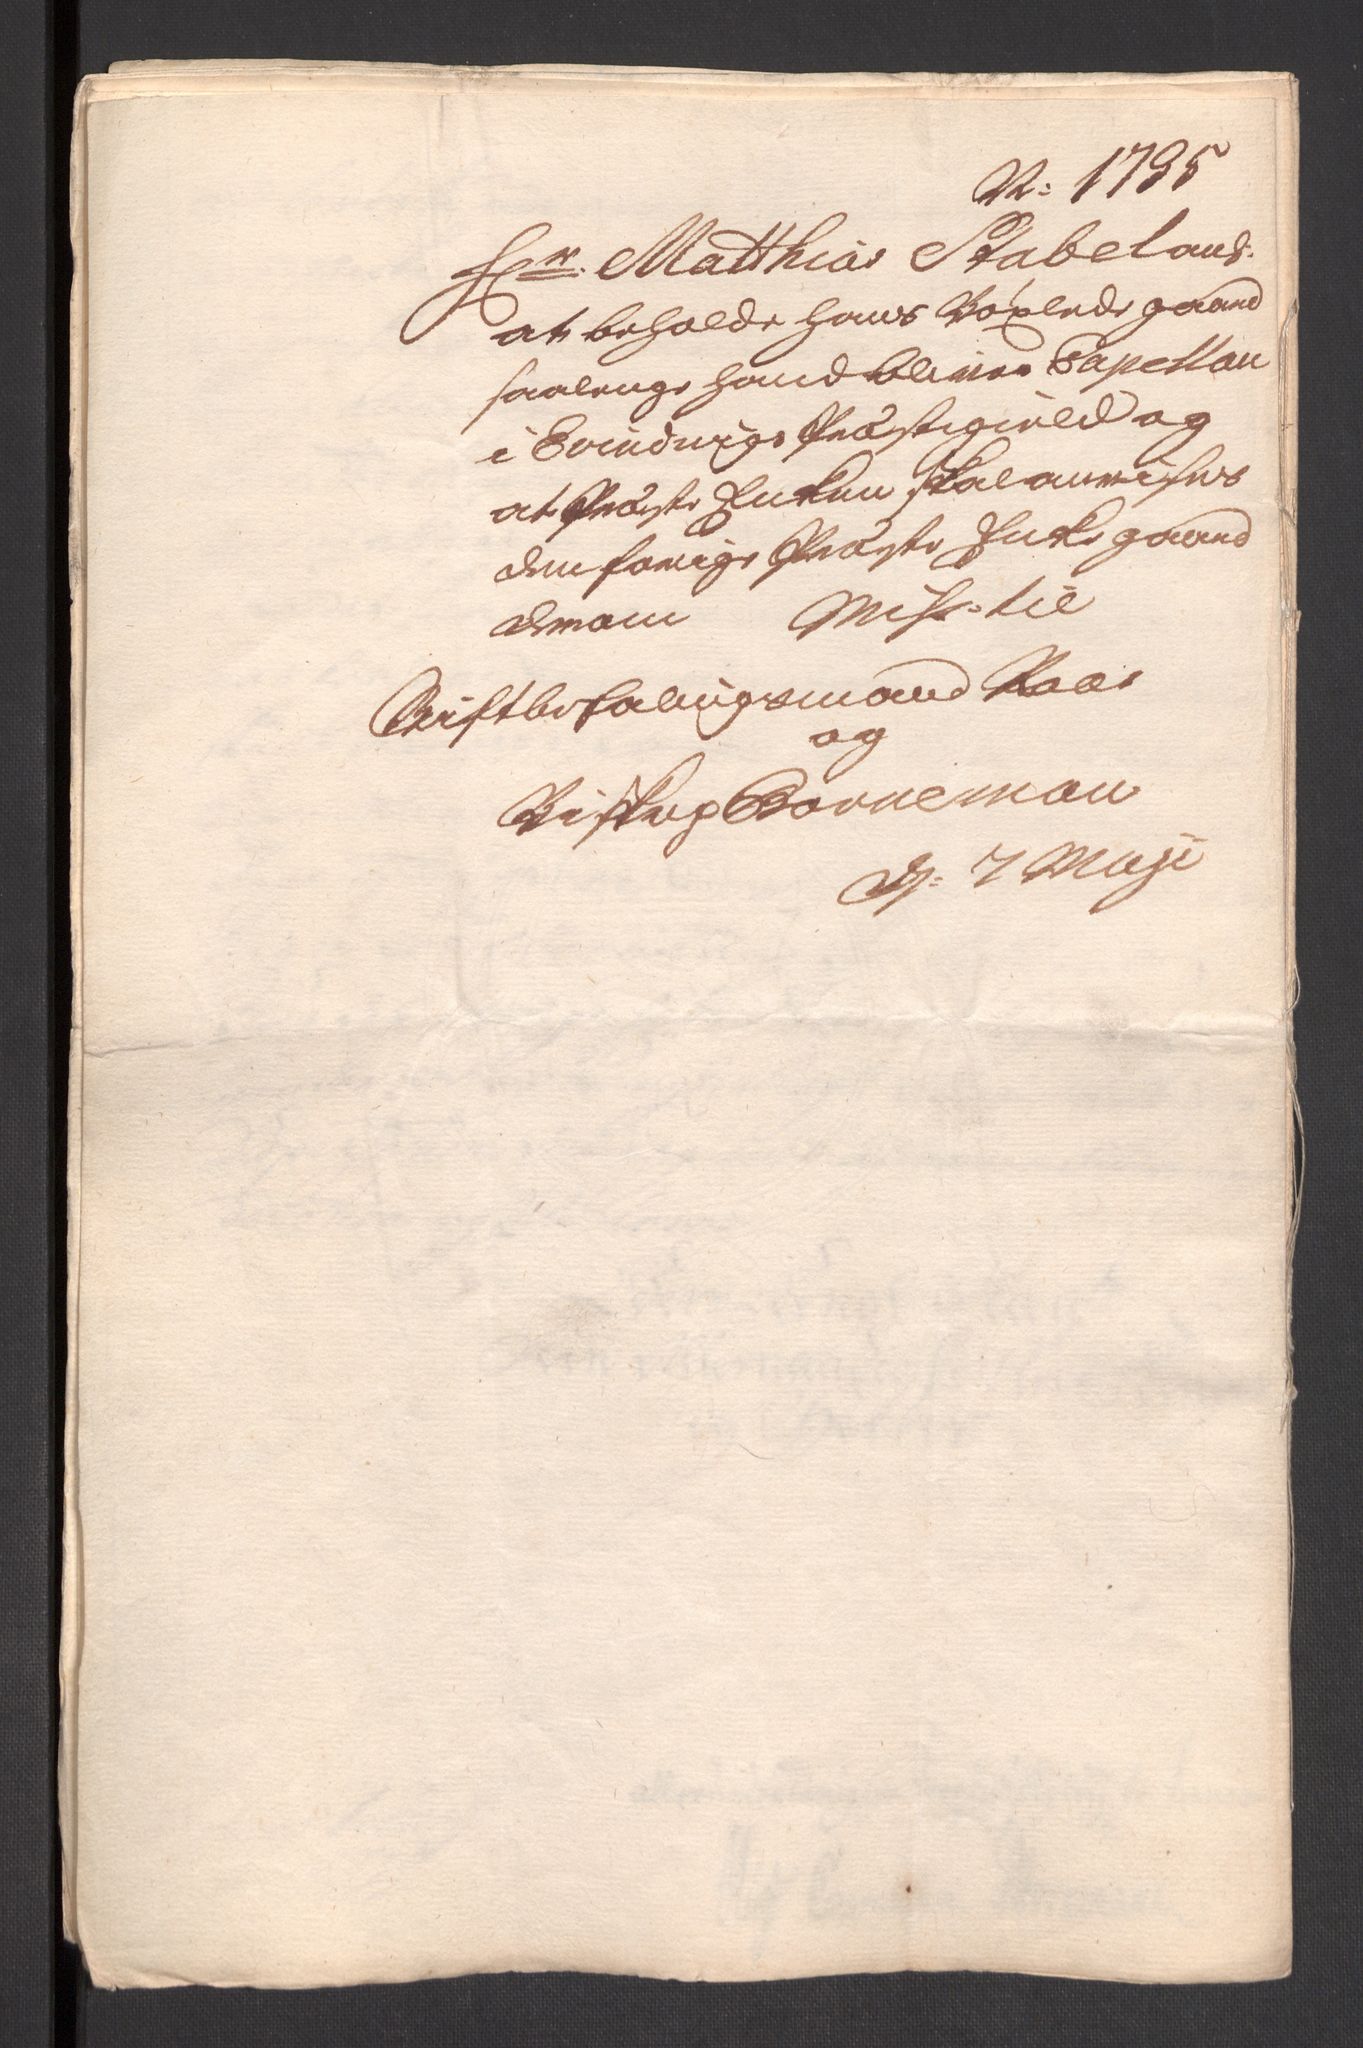 N: 1735
Hr. Matthias Stabel ans.
at beholde hans Böxlede gaard
saalenge hand bliver Capellan
i Evindvigs Præstegield og
at Præste Encken skal anvises
den forrige Præste Encke gaard
Miss. til
Stiftbefalingsmand Kaas
og
Biskop Borneman
d. 7 Maji